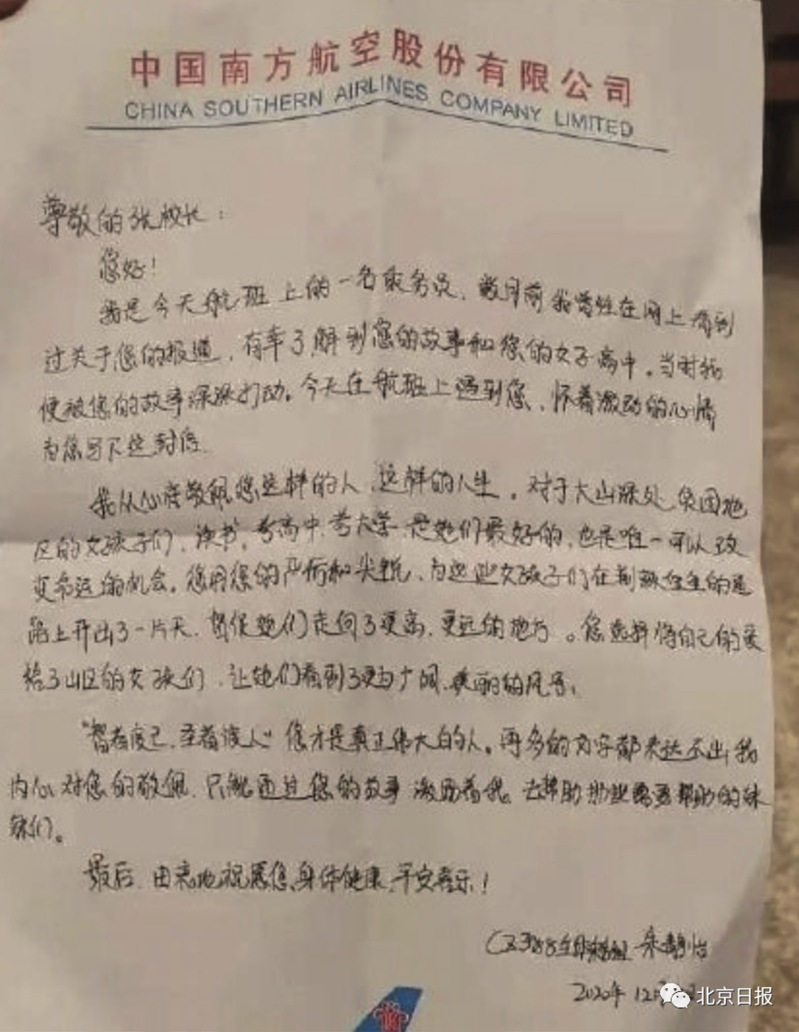 中国南方航空股份有限公司
CHINA SOUTHERN AIRLINES COMPANY LIMITED
尊敬的张校长：
您好！
我是今天航班上的一名乘务员，数月前我曾经在网上看到
过关于您的报道，有幸了解到您的故事和您的女子高中。当时我
便被您的故事深深打动。今天在航班上遇到您、怀着激动的心情
为您写下这封信。
我从心底敬佩您这样的人、这样的人生。对于大山深处贫困地
区的女孩子们，读书，考高中，考大学，是她们最好的，也是唯一可以改
变命运的机会。您用您的严苛和尖锐，为这些女孩子们在荆棘丛生的道
路上开出了一片天，督促她们走向了更高、更远的地方。您选择将自己的爱
给了山区的女孩们，让她们看到了更为广阔、美丽的风景。
“智者度己，圣者渡人”您才是真正伟大的人。再多的文字都表达不出我
内心对您的敬佩，只能通过您的故事激励着我，去帮助那些需要帮助的妹
妹们。
最后，由衷地祝愿您，身体健康，平安喜乐！
CZ3988 朱静怡
2020年12月
北京日报